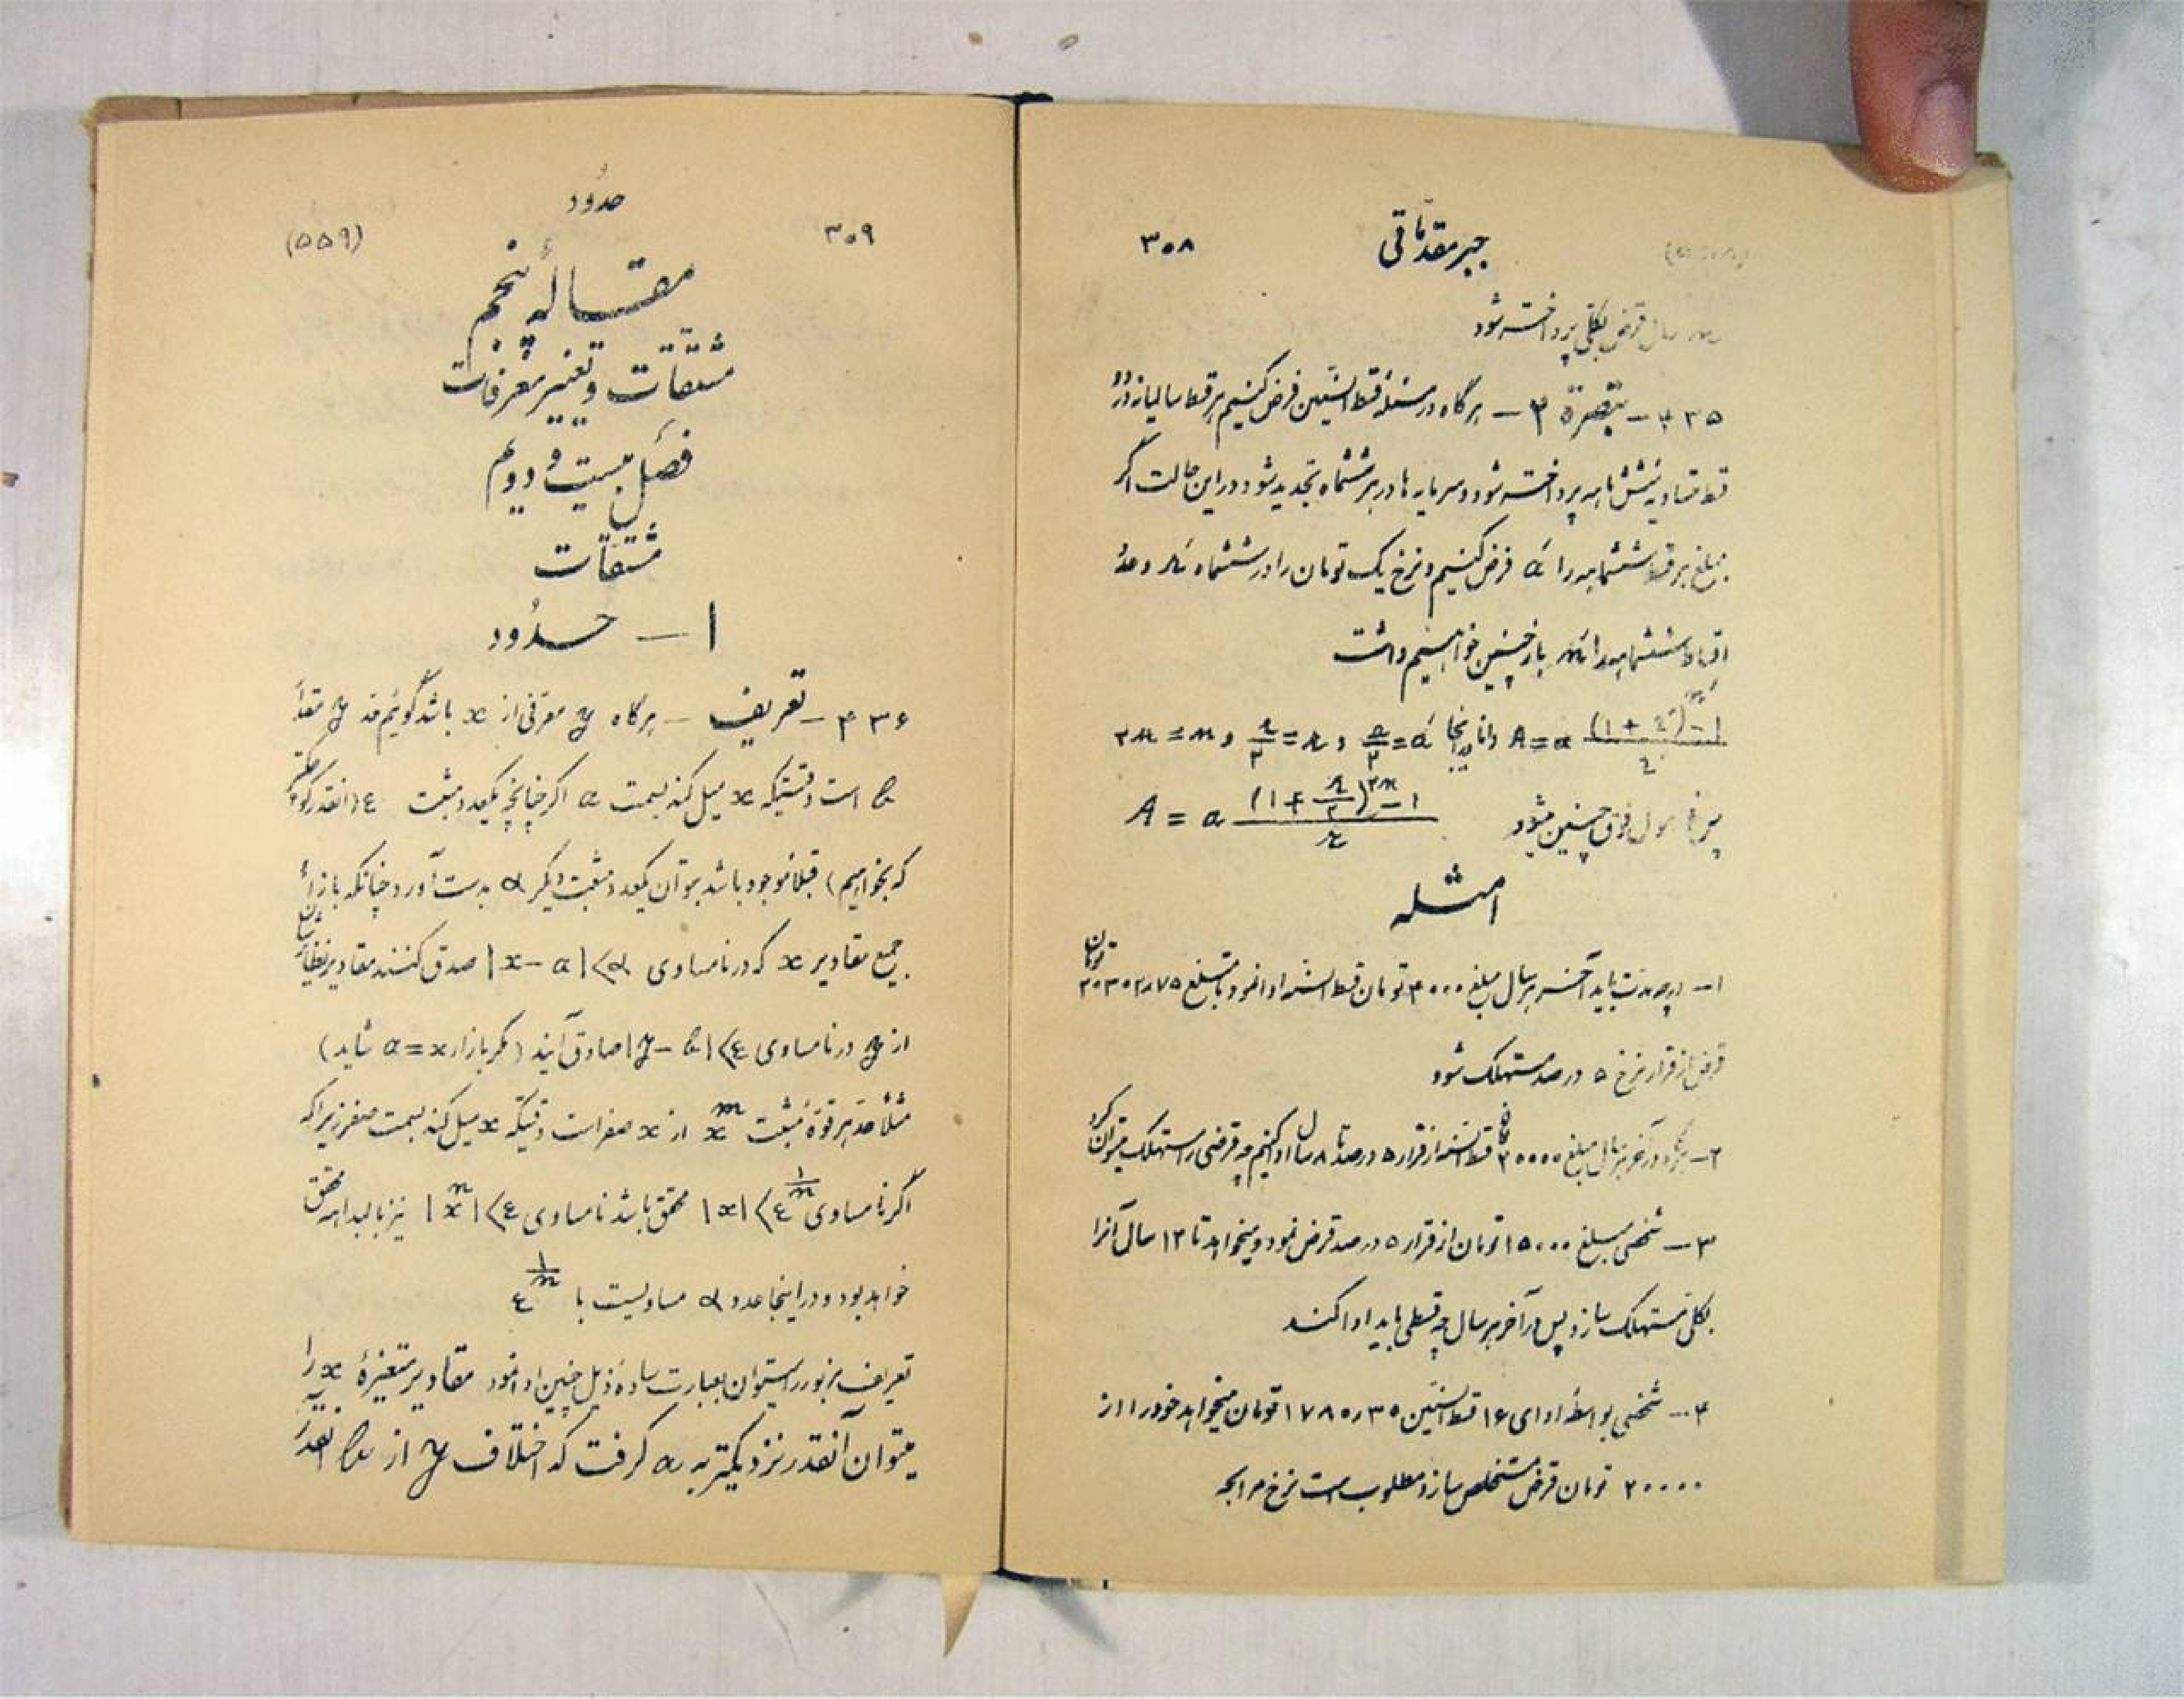 جبر مقدّماتی
۳۰۸
سال قرض بکلّی پرداخته شود
۴۳۵ – تبصرهٔ ۳ – هرگاه در مسئلهٔ قسط السنین فرض کنیم هر قسط سالیانه در دو
قسط متساویه ششماهه پرداخته شود و سرمایه ها در هر ششماه تجدید شود در این حالت اگر
مبلغ هر قسط ششماهه را a' فرض کنیم و نرخ یک تومان را در ششماه r' و عدهٔ
اقساط ششماهه را n' باز چنین خواهیم داشت
A = a' ((1 + r')^n' – 1)/r' و اما در اینجا a' = a/۲ و r' = r/۲ و n' = ۲n
پس فرمول فوق چنین میشود A = a ((1 + r/۲)^۲n – 1)/r
امثله
۱– در چه مدت باید آخر هر سال مبلغ ۴۰۰۰ تومان قسط السنه ادا نمود تا مبلغ ۲۰۳۰۲٫۷۵ تومان
قرض از قرار نرخ ۵ در صد مستهلک شود
۲– هرگاه در آخر هر سال مبلغ ۲۰۰۰۰ تومان قسط السنه از قرار ۵ درصد تا ۸ سال ادا کنیم چه قرضی را مستهلک میتوان کرد
۳– شخصی مبلغ ۱۵۰۰۰ تومان از قرار ۵ در صد قرض نمود و میخواهد تا ۱۲ سال آنرا
بکلی مستهلک سازد پس در آخر هر سال چه قسطی باید ادا کند
۴– شخصی بواسطه ادای ۱۶ قسط السنین ۱۷۸۵٫۳۵ تومان میخواهد خود را از
۲۰۰۰۰ تومان قرض مستخلص سازد مطلوب است نرخ مرابحه
حدُود
۳۰۹
(۵۵۹)
مقالهٔ پنجم
مشتقّات و تغییر معرفات
فصل بیست و دویم
مشتقّات
۱ – حدُود
۴۳۶ – تعریف – هرگاه y معرفی از x باشد گوئیم حد y مقدار
b است وقتیکه x میل کند بسمت a اگر چنانچه یکعدد مثبت ε (آنقدر کوچک
که بخواهیم) قبلاً موجود باشد بتوان یکعدد مثبت دیگر α بدست آورد چنانکه بازاء
جمیع مقادیر x که در نامساوی |x – a| < α صدق کنند مقادیر نظائرشان
از y در نامساوی |y – b| < ε صادق آیند (مگر بازاء x = a شاید)
مثلاً حد هر قوّهٔ مثبت x^m از x صفر است وقتیکه x میل کند بسمت صفر زیرا که
اگر نامساوی |x| < ε^(1/m) محقق باشد نامساوی |x^m| < ε نیز بالبداهه محقق
خواهد بود و در اینجا عدد α مساویست با ε^(1/m)
تعریف مزبور را میتوان بعبارت سادهٔ ذیل چنین ادا نمود مقادیر متغیرهٔ x را
میتوان آنقدر نزدیکتر به a گرفت که اختلاف y از b بقدر